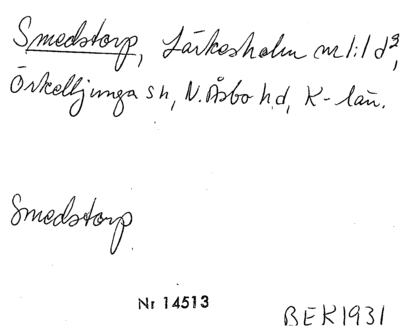 Smedstorp, Lärkesholm nr 1:1 d²,
Örkelljunga sn, N. Åsbo hd, K-län.
Smedstorp
Nr 14513
BEK1931